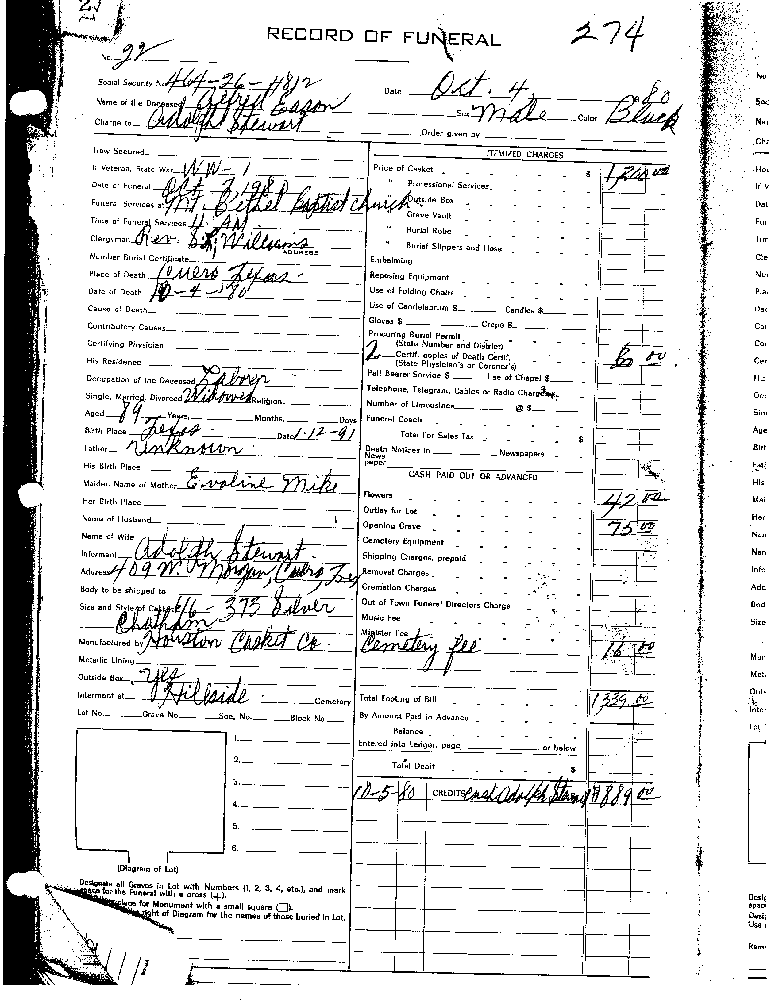 RECORD OF FUNERAL
274
No. 22
Social Security No. 464-26-4812
Date Oct. 4, 1980
Name of the Deceased Alfred Eason
Sex Male Color Black
Charge to Adolph Stewart
Order given by
How Secured
If Veteran, State War WW-1
Date of Funeral Oct
Funeral Services at Mt. Bethel Baptist Church
Time of Funeral Services 11 AM
Clergyman Rev. Williams
ADDRESS
Number Burial Certificate
Place of Death Cuero Texas
Date of Death 10-4-80
Cause of Death
Contributory Causes
Certifying Physician
His Residence
Occupation of the Deceased Laborer
Single, Married, Divorced Widowed Religion
Aged 89 Years, Months, Days
Birth Place Texas Date 1-12-91
Father Unknown
His Birth Place
Maiden Name of Mother Evaline Mike
Her Birth Place
Name of Husband
Name of Wife
Informant Adolph Stewart
Address 409 W. Morgan, Cuero, Tex
Body to be shipped to
Size and Style of Casket 6/6 - 375 Silver
Chatham
Manufactured by Houston Casket Co.
Metallic Lining
Outside Box Yes
Interment at Hillside Cemetery
Lot No. Grave No. Sec. No. Block No.
1.
2.
3.
4.
5.
6.
(Diagram of Lot)
Designate all Graves in Lot with Numbers (1, 2, 3, 4, etc.), and mark
space for the Funeral with a cross (+).
place for Monument with a small square (□).
right of Diagram for the names of those buried in Lot.
ITEMIZED CHARGES
Price of Casket $
" Professional Services
" Outside Box
" Grave Vault
" Burial Robe
" Burial Slippers and Hose
Embalming
Reposing Equipment
Use of Folding Chairs
Use of Candelabrum $ Candles $
Gloves $ Crepe $
Procuring Burial Permit
(State Number and District)
2 Certif. copies of Death Certif.
(State Physician's or Coroner's) 6 00
Pall Bearer Service $ Use of Chapel $
Telephone, Telegram, Cables or Radio Charges
Number of Limousines @ $
Funeral Coach
Total For Sales Tax $
Death Notices in Newspapers
News
paper
CASH PAID OUT OR ADVANCED
Flowers 42 00
Outlay for Lot
Opening Grave 75 00
Cemetery Equipment
Shipping Charges, prepaid
Removal Charges
Cremation Charges
Out of Town Funeral Directors Charge
Music Fee
Minister Fee
Cemetery fee 16 00
Total Footing of Bill 1339 00
By Amount Paid in Advance
Balance
Entered into Ledger, page or below
Total Debit $
10-5-80 CREDITS Cash Adolph Stewart $889 00